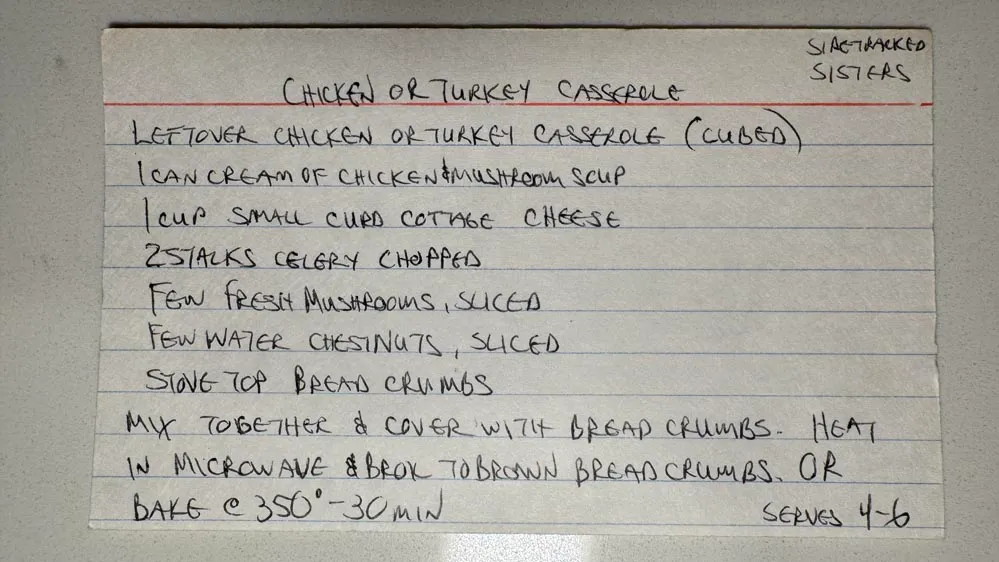 SIDETRACKED
SISTERS
CHICKEN OR TURKEY CASSEROLE
LEFTOVER CHICKEN OR TURKEY CASSEROLE (CUBED)
1 CAN CREAM OF CHICKEN & MUSHROOM SOUP
1 CUP SMALL CURD COTTAGE CHEESE
2 STALKS CELERY CHOPPED
FEW FRESH MUSHROOMS, SLICED
FEW WATER CHESTNUTS, SLICED
STOVE TOP BREAD CRUMBS
MIX TOGETHER & COVER WITH BREAD CRUMBS. HEAT
IN MICROWAVE & BROIL TO BROWN BREAD CRUMBS. OR
BAKE @ 350° - 30 MIN
SERVES 4-6